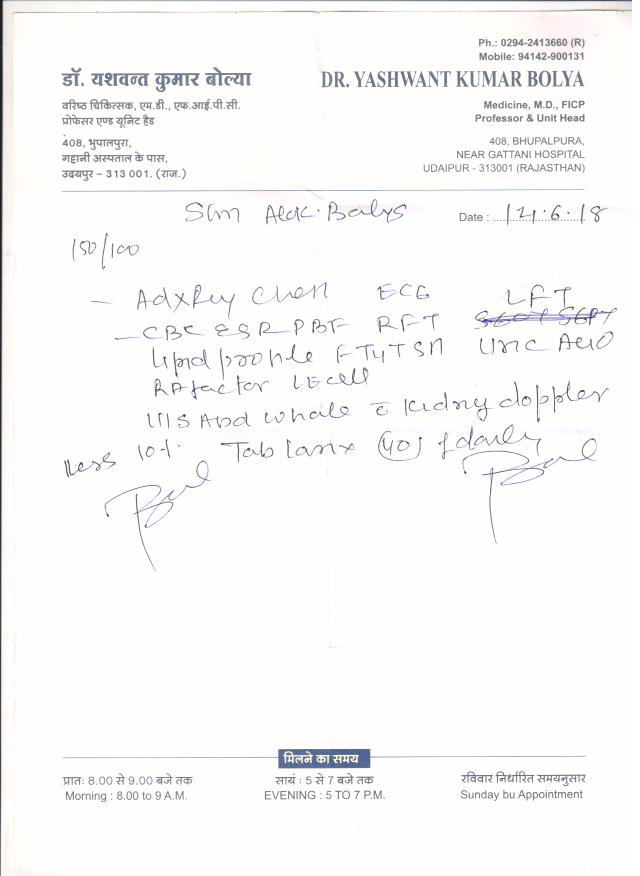 Ph.: 0294-2413660 (R)
Mobile: 94142-900131
डॉ. यशवन्त कुमार बोल्या
DR. YASHWANT KUMAR BOLYA
वरिष्ठ चिकित्सक, एम.डी., एफ.आई.पी.सी.
प्रोफेसर एण्ड यूनिट हैड
Medicine, M.D., FICP
Professor & Unit Head
408, भुपालपुरा,
गट्टानी अस्पताल के पास,
उदयपुर – 313 001. (राज.)
408, BHUPALPURA,
NEAR GATTANI HOSPITAL
UDAIPUR - 313001 (RAJASTHAN)
Date : 14.6.18
150/100
ECG LFT
CBC ESR PBF RFT
Lipid profile Uric Acid
RA factor LE cell
Abd whole c̄ kidney doppler
Less 10% Tab Lanx (40) daily
मिलने का समय
प्रातः 8.00 से 9.00 बजे तक
Morning : 8.00 to 9 A.M.
सायं : 5 से 7 बजे तक
EVENING : 5 TO 7 P.M.
रविवार निर्धारित समयनुसार
Sunday bu Appointment